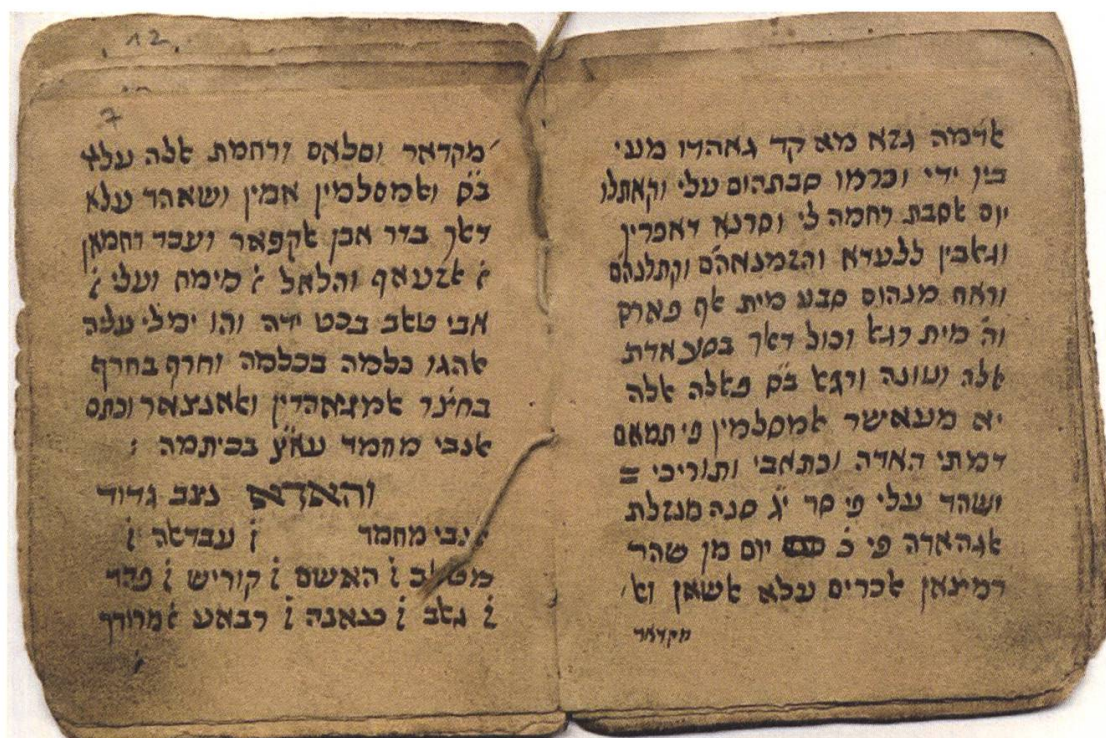 ﭏדמה גזא מא קד גאהדו מעי
בין ידי וכרמו סבתהום עלי וקאתלו
יום ﭏסבת רחמה לי וסרנא דאפרין
וגאבין ללעדא והזמנאהם וקתלנהם
וראח מנהום סבע מית ﭏף פארס
וה' מית רגא וכול דﭏך בסעאדת
ﭏלה ועונה ורגא ב"ס פאלה ﭏלה
יא מעאישר ﭏמסלמין פי תמאם
דמתי האדה וכתאבי ותוריכי =
ושהד עלי פי סר י"ג סנה מנזלת
ﭏגהאדה פי כ' יום מן שהר
רמצאן ﭏכרים עלא ﭏשאן וﭏ
מקדאר
12
7
מקדאר וסלאם ורחמת ﭏלה
ב"ס וﭏמסלמין אמין ושאהד עלא
דﭏך בדר אבן ﭏקפאר ועבד רחמאן
ן' והלאל ן' מימח ועלי ן'
אבי טאב בכט ידה והו ימלי עליה
ﭏהגו כלמה בכלמה וחרף בחרף
בחצר ﭏמגאהדין וﭏאנצאר וכתם
ﭏנבי מחמד בכיתמה :
והאדא נצב גדוד
ﭏנבי מחמד ן' עבדﭏה ן'
ן' האשם ן' קוריש ן' פהר
ן' גאב ן' כנאנה ן' רבאע